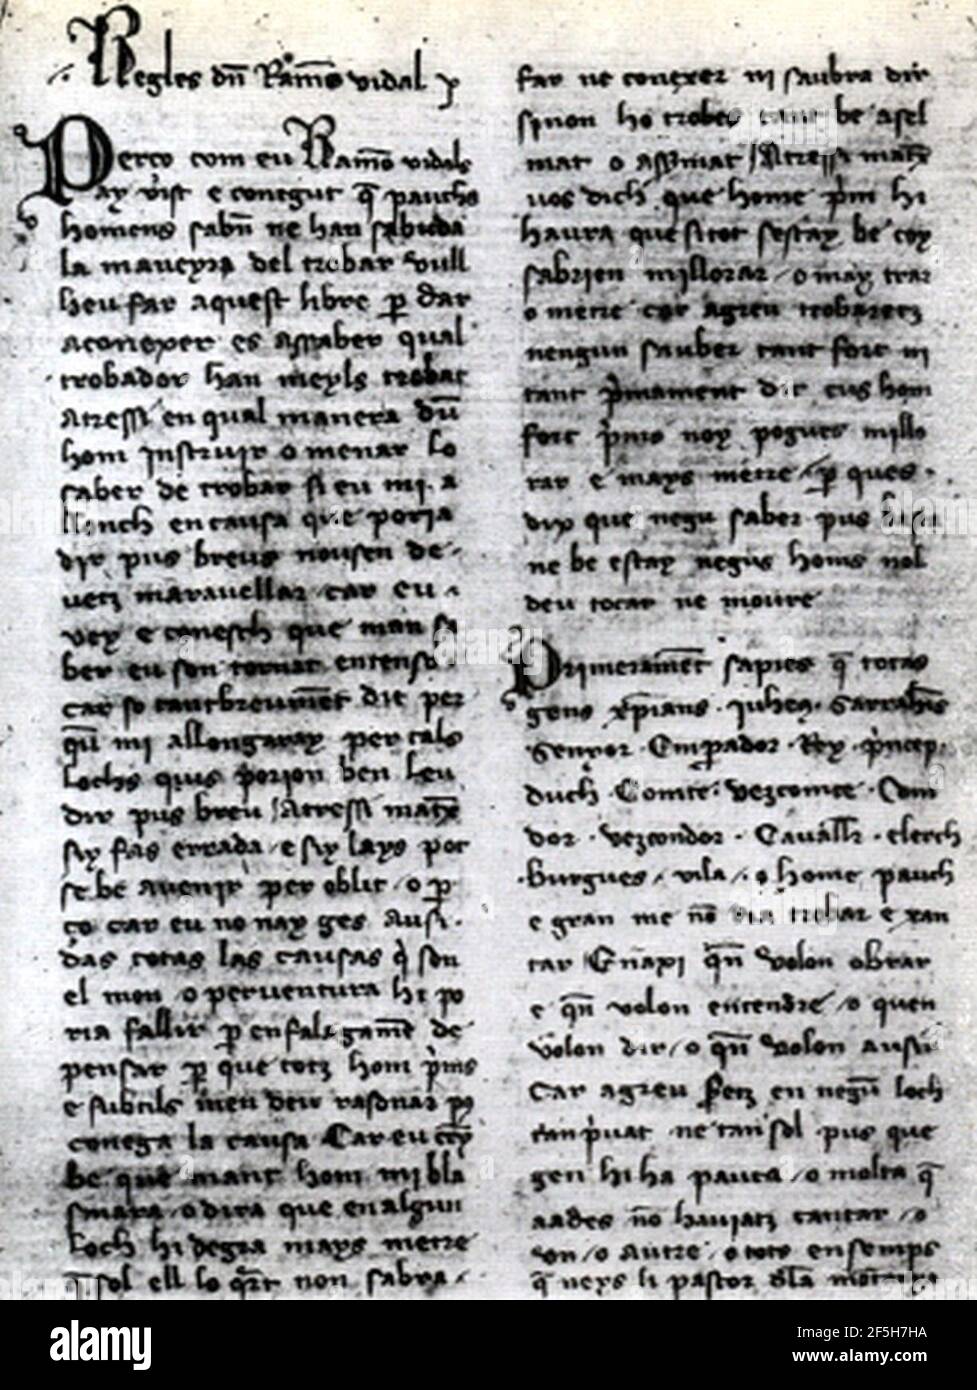 Regles dn Ramos vidal
Perço com eu Ramos vidals
ay vist e conegut q pauchs
homens sabn ne han sabuda
la maneyra del trobar vull
heu far aquest libre p dar
aconexer es assaber qual
trobador han meyls trobat
Atressi en qual manera du
hom instruir o menar lo
saber de trobar si eu mi a
llonch en causa que poria
dir pus breus nousen de
uetz maravellar car eu
vey e conesch que man sa
ber eu son tornat entenso
car so tantbreument dit per
qu mi allongaray per cals
lochs quis porion ben leu
dir pus breu Atressi mate
siy fas errada e siy lays pot
se be avenir per oblit o p
ço car eu no nay ges ausi
das totas las causas q son
el mon o perventura hi po
ria fallir p enfalagame de
pensar p que totz hom pms
e subtils
conega la causa Car eu
be que mant hom mi bla
smara o dira que en algun
loch hi degra mays metre
sol ell lo qrt non sabra
far ne conexer ni saubra dir
sinon ho trobes tant be asel
mat o assimat Atressi mate
vos dich que home prim hi
haura que sitot sestay be
sabrien millorar o may trar
o metre car agreu trobaretz
nengun sauber tant fort ni
tant pimament dit eus hom
fort prims noy pogues millo
rar e mays metre p ques
dix que negu saber pus
ne be estay negus homs nol
deu tocar ne moure
Primerament sapies q totas
gens xpians juheus Sarrahis
Senyor Emperador Rey princep
duch Comte vezcomte Com
dor vezcondor Cavaller clerch
Burgues vila o home pauch
e gran me no trobar e xan
tar Enaxi qn volon obrar
e qn volon entendre o quen
volon dir o qn volon ausir
Car agreu seretz en negun loch
tan privat ne tan sol pus que
gen hi ha pauca o molta q
aades no haujatz cantar o
on o autre o tots ensemps
q neys li pastor dla
alamy
Image ID: 2F5H7HA
www.alamy.com